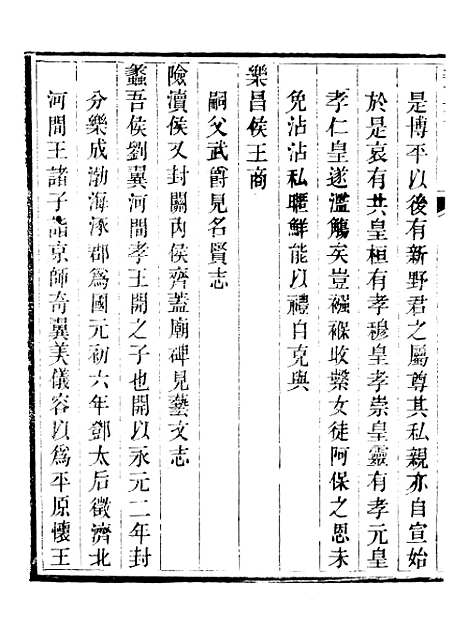 是博平以後有新野君之屬尊其私親亦自宣始
於是哀有共皇桓有孝穆皇孝崇皇靈有孝元皇
孝仁皇遂濫觴矣豈襁褓收繫女徒阿保之恩未
免沾沾私暱鮮能以禮自克與
樂昌侯王商
嗣父武爵見名賢志
險瀆侯又封關內侯齊蓋廟碑見藝文志
蠡吾侯劉翼河間孝王開之子也開以永元二年封
分樂成渤海涿郡爲國元初六年鄧太后徵濟北
河間王諸子詣京師奇翼美儀容以爲平原懷王